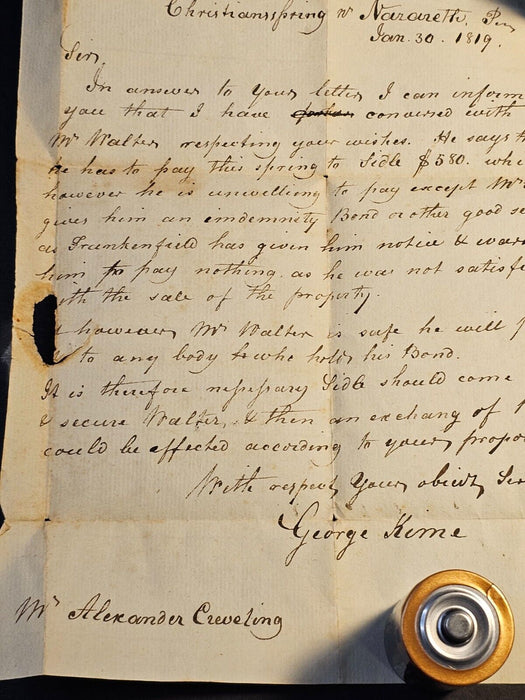 Christiansspring nr Nazareth, Pen
Jan. 30. 1819.
Sir,
In answer to your letter I can inform
you that I have conversed with
Mr Walter respecting your wishes. He says th
he has to pay this spring to Sidle $580. whi
however he is unwilling to pay except Mr
gives him an indemnity Bond or other good se
as Frankenfield has given him notice & warn
him to pay nothing. as he was not satisfi
with the sale of the property.
however, Mr Walter is safe he will p
it to any body who holds his Bond.
It is therefore nessessary Sidle should come
& secure Walter, & then an exchang of
could be effected according to your propo
With respect, Your obiedt Ser
George Kime
Mr Alexander Creveling